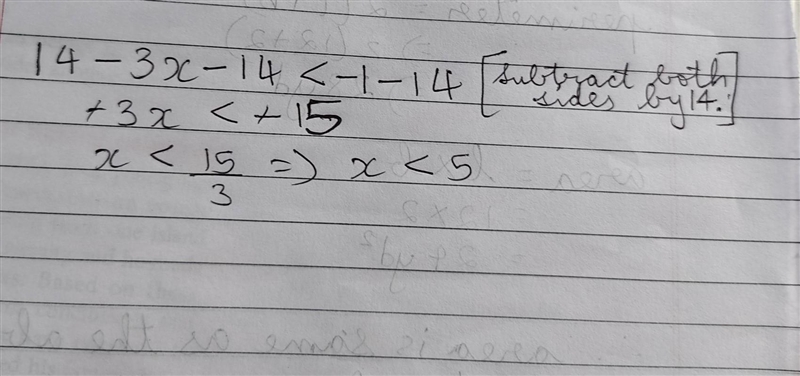 14 - 3x - 14 < -1 - 14 [subtract both sides by 14.]
+3x < +15
x < 15/3 => x < 5